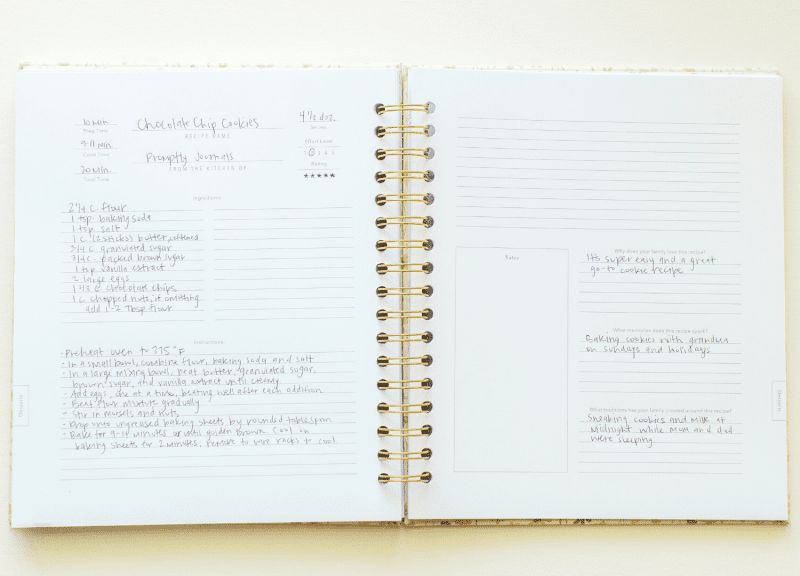 10 min
Prep Time
Chocolate Chip Cookies
RECIPE NAME
4 1/2 doz.
Serves
9-11 min
Cook Time
Effort Level
Promptly Journals
FROM THE KITCHEN OF
Rating
★★★★★
20 min
Total Time
Ingredients
2 1/4 C. flour
1 tsp. baking soda
1 tsp. salt
1 C. (2 sticks) butter, softened
3/4 C. granulated sugar
3/4 C. packed brown sugar
1 tsp vanilla extract
2 large eggs
chocolate chips
1 C. chopped nuts, if omitting
add 1-2 Tbsp flour
Instructions
- Preheat oven to 375°F
- In a small bowl, combine flour, baking soda and salt
- In a large mixing bowl, beat butter, granulated sugar,
brown sugar, and vanilla extract until creamy
- Add eggs, one at a time, beating well after each addition
- Beat flour mixture gradually
- Stir in morsels and nuts,
- Drop onto ungreased baking sheets by rounded tablespoon
- Bake for 9-11 minutes or until golden brown. Cool on
baking sheets for 2 minutes, remove to wire racks to cool
Desserts
Notes
Why does your family love this recipe?
Its super easy and a great
go-to cookie recipe
What memories does this recipe spark?
Baking cookies with grandma
on sundays and holidays
What traditions has your family created around this recipe?
Sneaking cookies and milk at
Midnight while mom and dad
were sleeping
Desserts